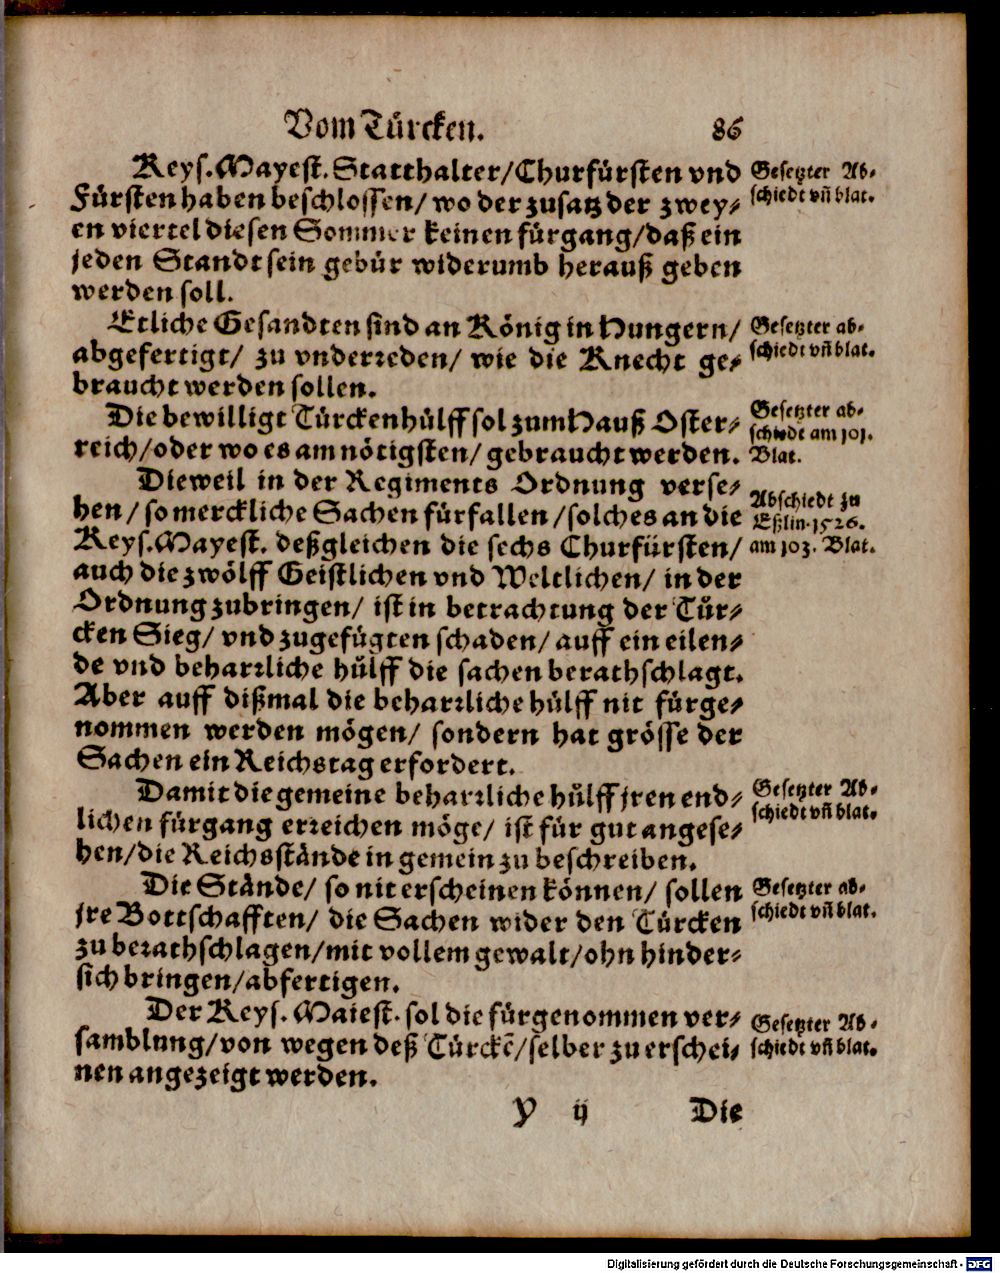 Vom Türcken. 86
Keys. Mayest. Statthalter/Churfürsten vnd
Fürsten haben beschlossen/ wo der zusatz der zwey-
en viertel diesen Sommer keinen fürgang/daß ein
jeden Standt sein gebür widerumb herauß geben
werden soll.
Gesetzter Ab-
schiedt vñ blat.
Etliche Gesandten sind an König in Hungern/
abgefertigt/ zu vnderreden/ wie die Knecht ge-
braucht werden sollen.
Gesetzter ab-
schiedt vñ blat.
Die bewilligt Türckenhülff sol zum Hauß Oster-
reich/oder wo es am nötigsten/ gebraucht werden.
Gesetzter ab-
schiedt am 101.
Blat.
Dieweil in der Regiments Ordnung verse-
hen/ so merckliche Sachen fürfallen/solches an die
Keys. Mayest. deßgleichen die sechs Churfürsten/
auch die zwölff Geistlichen vnd Weltlichen/ in der
Ordnung zubringen/ ist in betrachtung der Tür-
cken Sieg/ vnd zugefügten schaden/ auff ein eilen-
de vnd beharrliche hülff die sachen berathschlagt.
Aber auff dißmal die beharrliche hülff nit fürge-
nommen werden mögen/ sondern hat grösse der
Sachen ein Reichstag erfordert.
Abschiedt zu
Eßlin. 1526.
am 103. Blat.
Damit die gemeine beharrliche hülff jren end-
lichen fürgang erreichen möge/ ist für gut angese-
hen/die Reichsstände in gemein zu beschreiben.
Gesetzter Ab-
schiedt vñ blat.
Die Stände/ so nit erscheinen können/ sollen
jre Bottschafften/ die Sachen wider den Türcken
zu berathschlagen/mit vollem gewalt/ohn hinder-
sich bringen/abfertigen.
Gesetzter ab-
schiedt vñ blat.
Der Keys. Maiest. sol die fürgenommen ver-
samblung/von wegen deß Türckẽ/selber zu erschei-
nen angezeigt werden.
Gesetzter Ab-
schiedt vñ blat.
Y ij Die
Digitalisierung gefördert durch die Deutsche Forschungsgemeinschaft - DFG